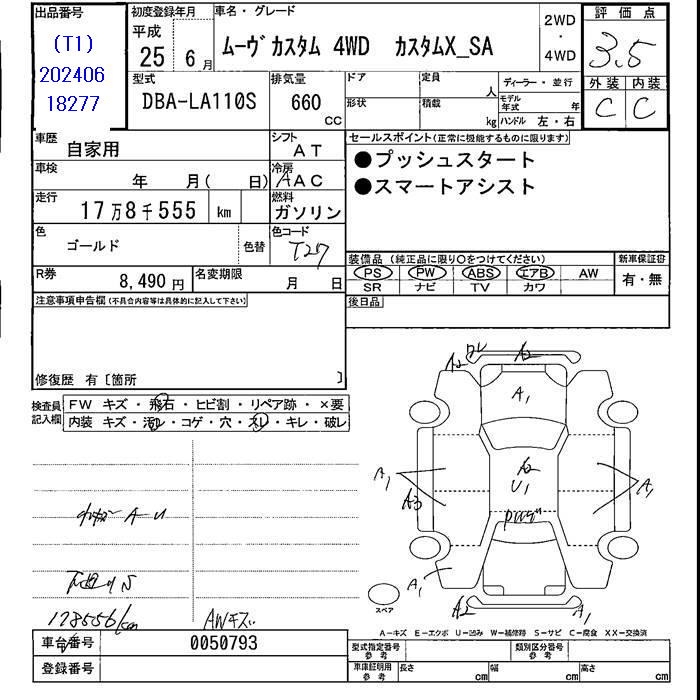 出品番号
(T1)
202406
18277
初度登録年月
平成
25 6 月
車名・グレード
ムーヴ カスタム 4WD カスタムX_SA
2WD
・
4WD
評価点
3.5
外装 内装
C C
型式
DBA-LA110S
排気量
660
CC
ドア
形状
定員
人
積載
kg
ディーラー・並行
モデル年式 年
ハンドル 左・右
車歴
自家用
シフト
AT
車検
年 月( 日)
冷房
AAC
走行
17万8千555 km
燃料
ガソリン
色
ゴールド
色替
色コード
T27
R券
8,490 円
名変期限
月 日
セールスポイント(正常に機能するものに限ります)
●プッシュスタート
●スマートアシスト
装備品 (純正品に限り○をつけてください)
PS PW ABS エアB AW
SR ナビ TV カワ
新車保証書
有・無
後日品
注意事項申告欄(不具合内容等は具体的に記入して下さい)
修復歴 有〔箇所 〕
検査員記入欄
FW キズ・飛石・ヒビ割・リペア跡・×要
内装 キズ・汚レ・コゲ・穴・スレ・キレ・破レ
A2 ワレ A2
A1
A1 A2 A1
A3 U1
A1
A2 A1
スペア
A U
下廻りS
178556km
AWキズ
A―キズ E―エクボ U―凹み W―補修跡 S―サビ C―腐食 XX―交換済
車台番号
0050793
登録番号
型式指定番号
参考
類別区分番号
参考
車庫証明用
参考
長さ cm
幅 cm
高さ cm